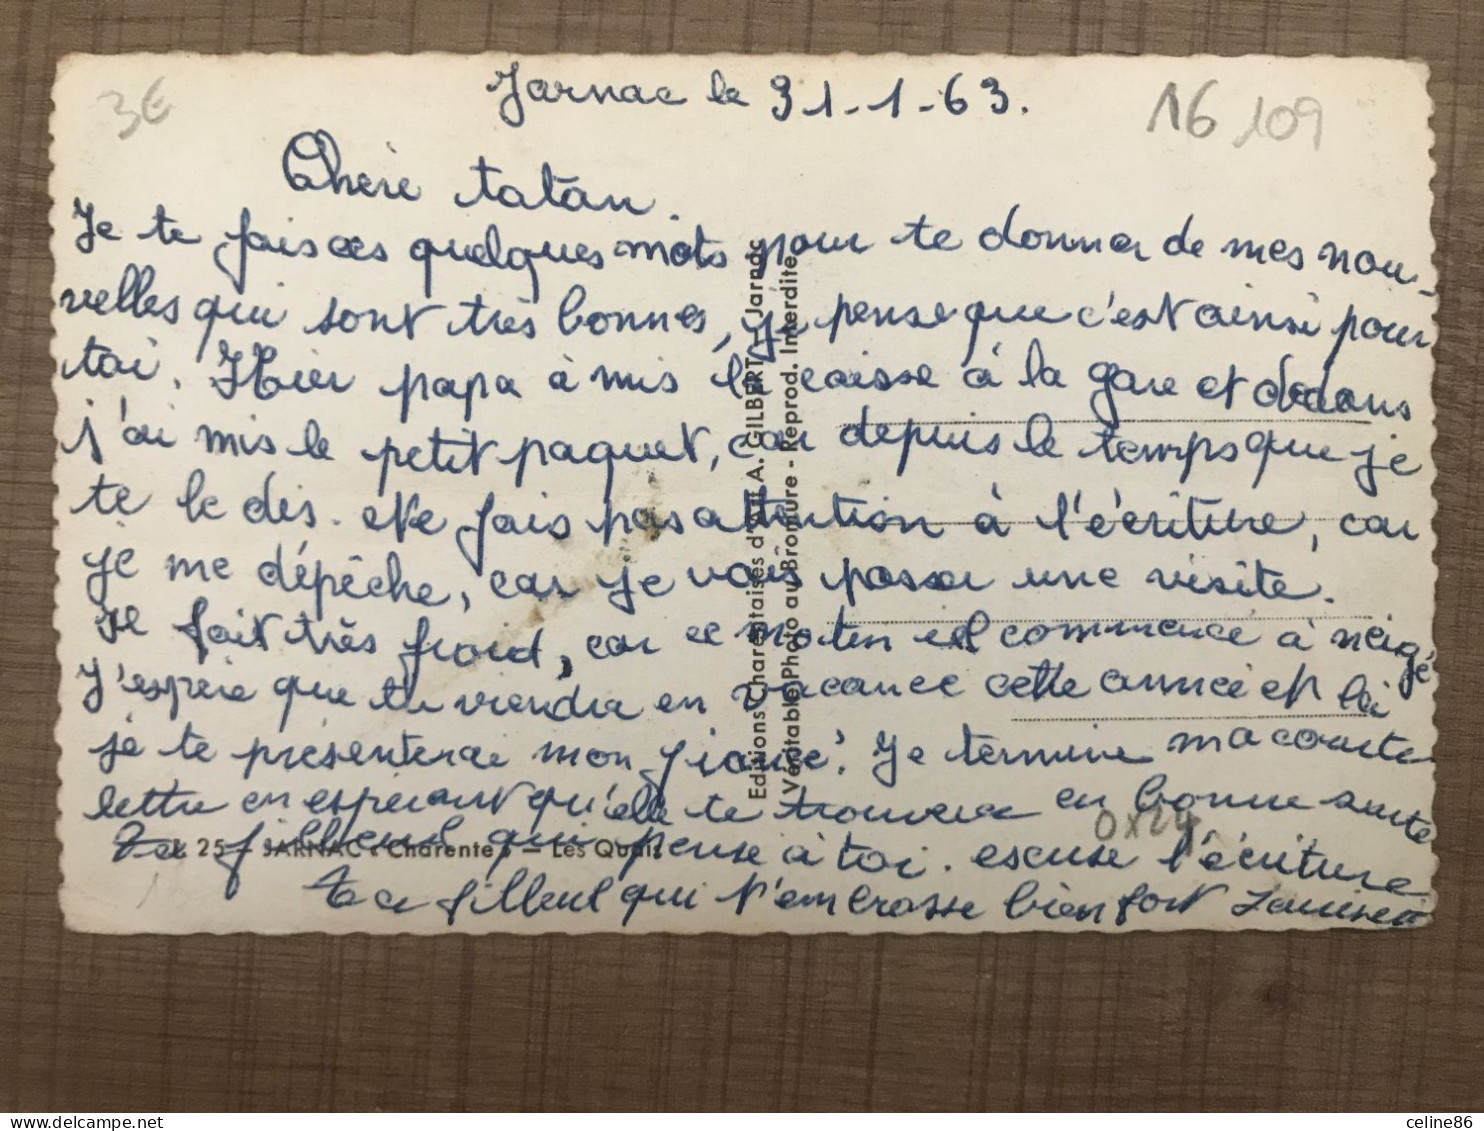 3€
Jarnac le 31-1-63.
16 109
Chère tatan.
Je te fais ces quelques mots pour te donner de mes nou-
velles qui sont très bonnes, je pense que c'est ainsi pour
toi. Hier papa à mis la caisse à la gare et dedans
j'ai mis le petit paquet, car depuis le temps que je
te le dis. Ne fais pas attention à l'écriture, car
je me dépêche, car je vais passer une visite.
Il fait très froid, car ce matin il commence à neigé
J'espère que tu viendra en vacance cette année et là
je te présenterai mon fiancé. Je termine ma courte
lettre en espérant qu'elle te trouvera en bonne santé
Ta filleul qui pense à toi. escuse l'écriture
Ta filleul qui t'embrasse bien fort
25 - JARNAC (Charente) - Les Quais
Editions Charentaises d'Art A. GILBERT - Jarnac
Véritable Photo au Bromure - Reprod. Interdite
celine86